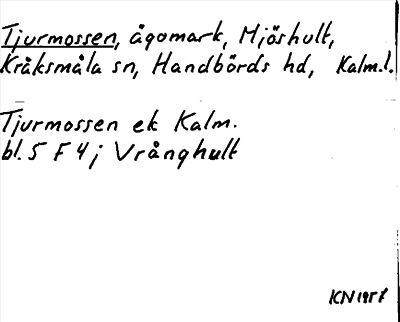 Tjurmossen, ägomark, Mjöshult,
Kråksmåla sn, Handbörds hd, Kalm.l.
Tjurmossen ek Kalm.
bl. 5 F 4 j Vrånghult
ICN 1957